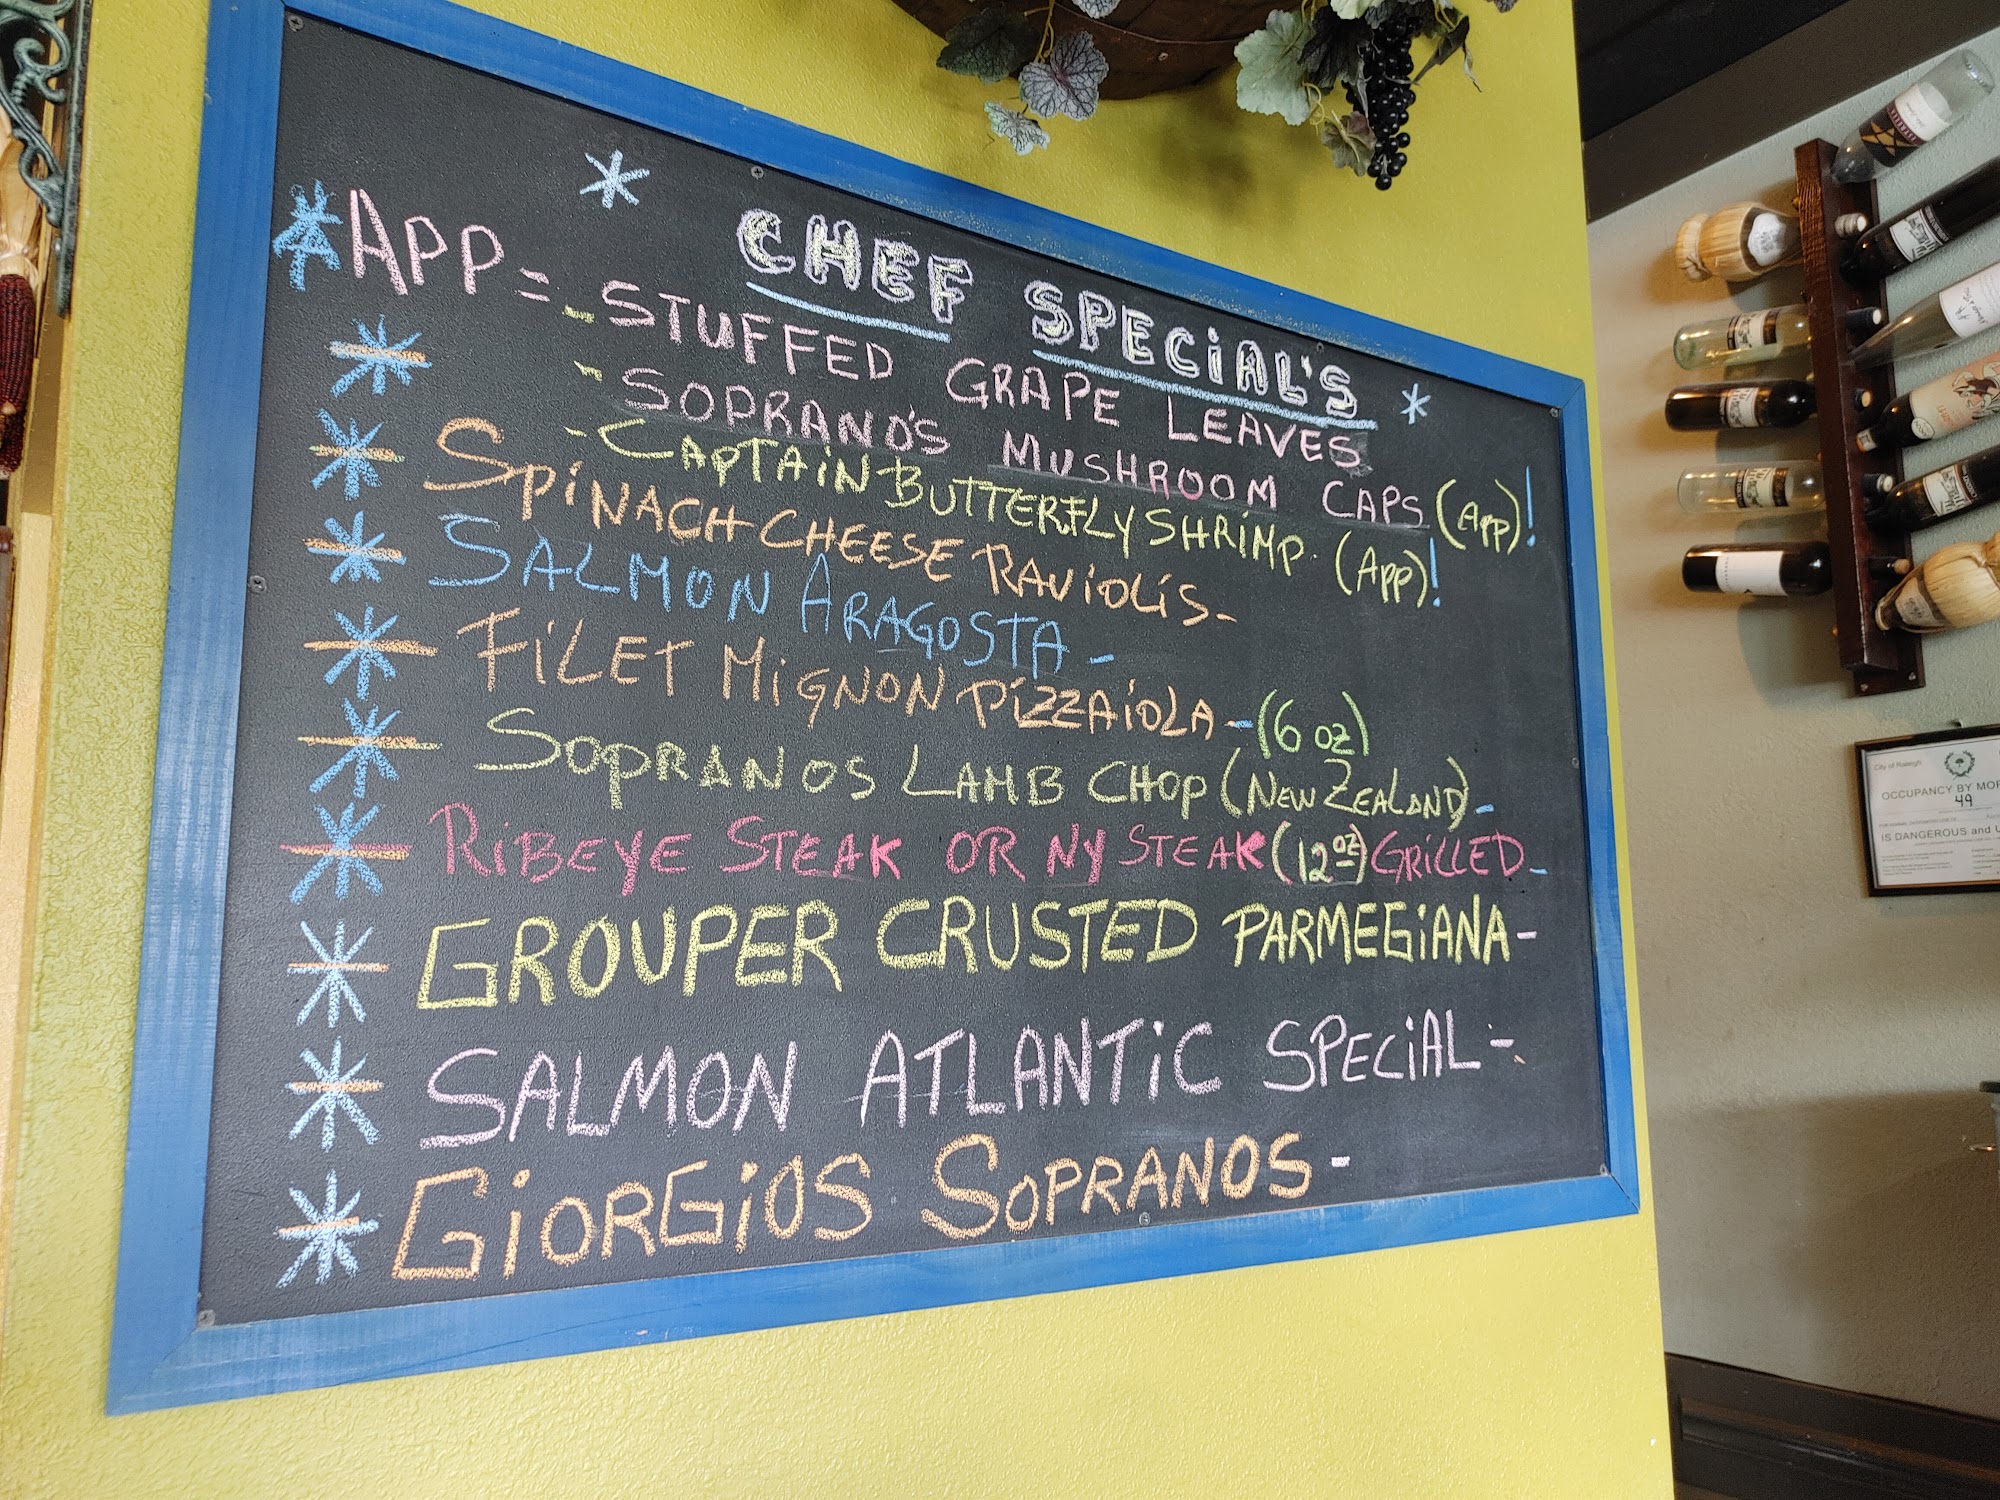 CHEF SPECiAL'S
APP = - STUFFED GRAPE LEAVES
- SOPRANO'S MUSHROOM CAPS (APP)!
- CAPTAiN BUTTERFLY SHRiMP. (APP)!
SPiNACH CHEESE RAViOLiS -
SALMON ARAGOSTA -
FiLET MiGNON PiZZAiOLA - (6 oz)
SOPRANOS LAMB CHOP (NEW ZEALAND) -
RiBEYE STEAK OR NY STEAK (12 oz) GRiLLED -
GROUPER CRUSTED PARMEGiANA -
SALMON ATLANTiC SPECiAL -
GiORGiOS SOPRANOS -
City of Raleigh
OCCUPANCY BY MOR
49
IS DANGEROUS and U